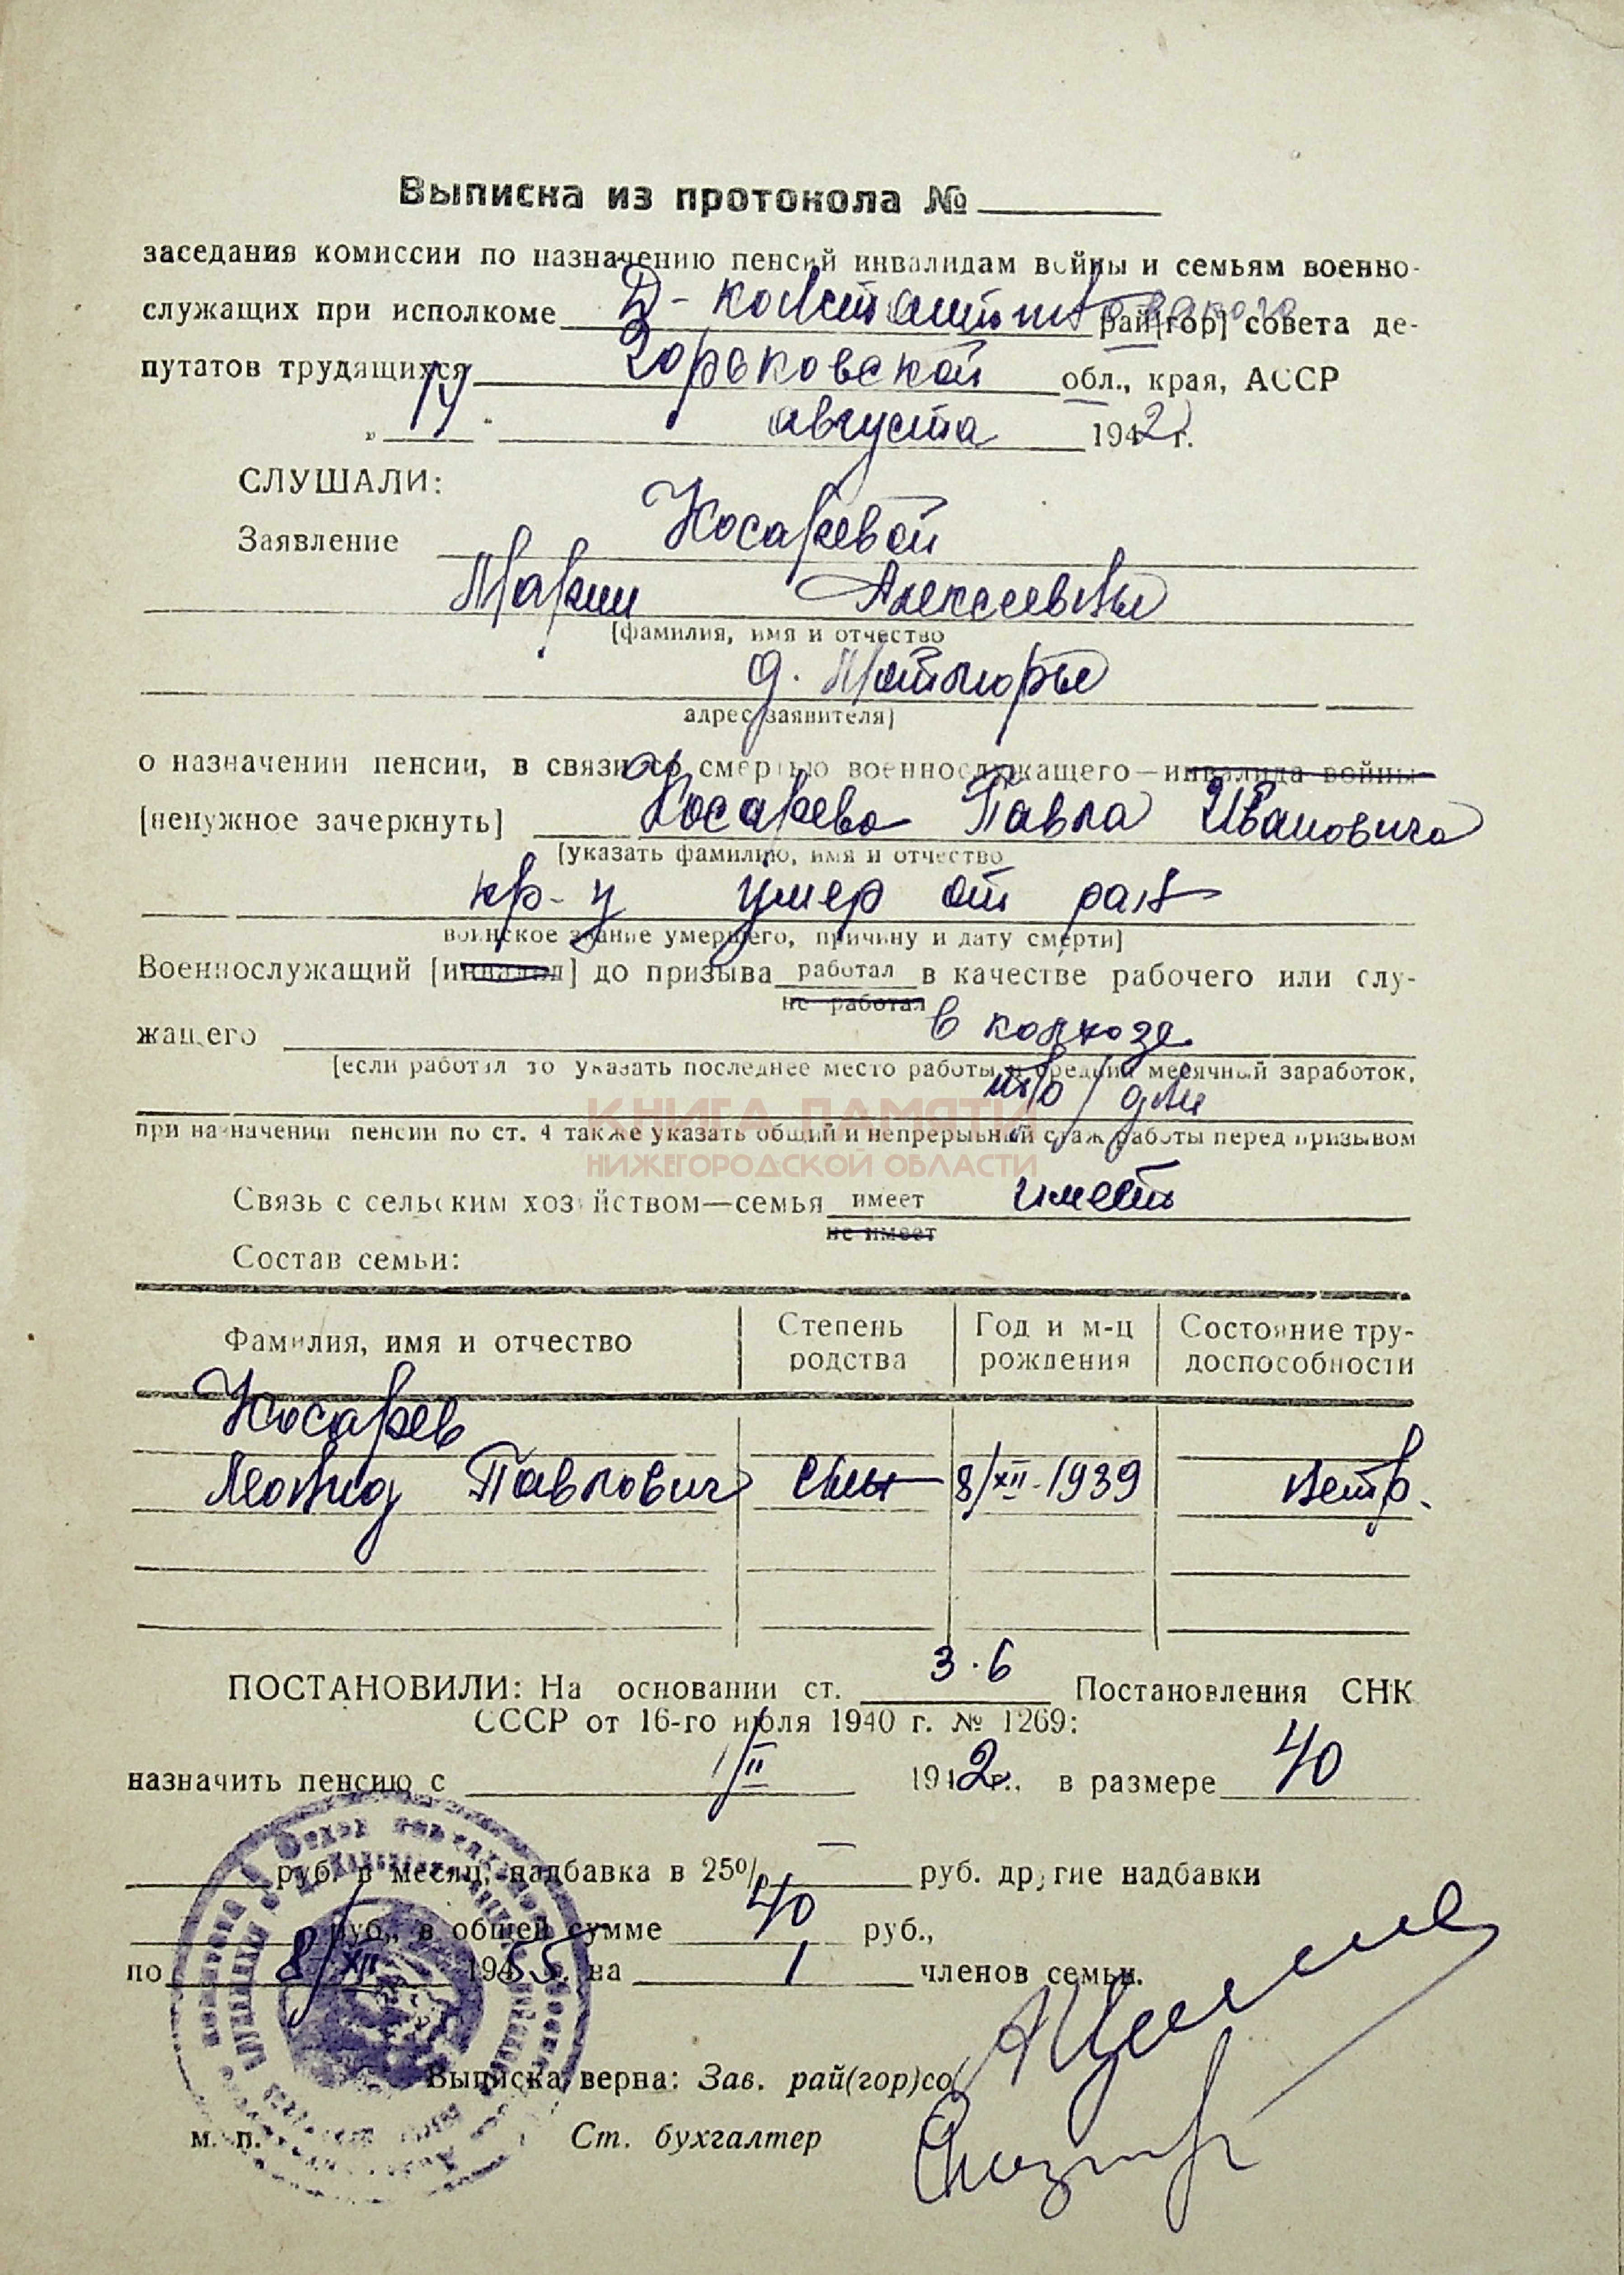 Выписка из протокола №
заседания комиссии по назначению пенсий инвалидам войны и семьям военно-
служащих при исполкоме Д-Константиновского рай[гор] совета де-
путатов трудящихся Горьковской обл., края, АССР
„14" августа 1942 г.
СЛУШАЛИ:
Заявление Косаревой
Марии Алексеевны
[фамилия, имя и отчество
д.
адрес заявителя]
о назначении пенсии, в связи со смертью военнослужащего—инвалида войны
[ненужное зачеркнуть] Косарева Павла Ивановича
[указать фамилию, имя и отчество
кр-ц умер от ран
воинское звание умершего, причину и дату смерти]
Военнослужащий [инвалид] до призыва работал в качестве рабочего или слу-
не работал
жащего в колхозе
[если работал то указать последнее место работы и средний месячный заработок,
тр/дни
при назначении пенсии по ст. 4 также указать общий и непрерывный стаж работы перед призывом
КНИГА ПАМЯТИ
НИЖЕГОРОДСКОЙ ОБЛАСТИ
Связь с сельским хозяйством—семья имеет имеет
не имеет
Состав семьи:
Фамилия, имя и отчество Степень родства Год и м-ц рождения Состояние тру-доспособности
Косарев
Леонид Павлович сын 8/XII-1939 нетр.
ПОСТАНОВИЛИ: На основании ст. 3.6 Постановления СНК
СССР от 16-го июля 1940 г. № 1269:
назначить пенсию с 1/II 1942 г., в размере 40
руб. в месяц, надбавка в 25% — руб. другие надбавки
руб., в общей сумме 40 руб.,
по 8/XII 1955 на 1 членов семьи.
Выписка верна: Зав. рай(гор)со
м. п. Ст. бухгалтер